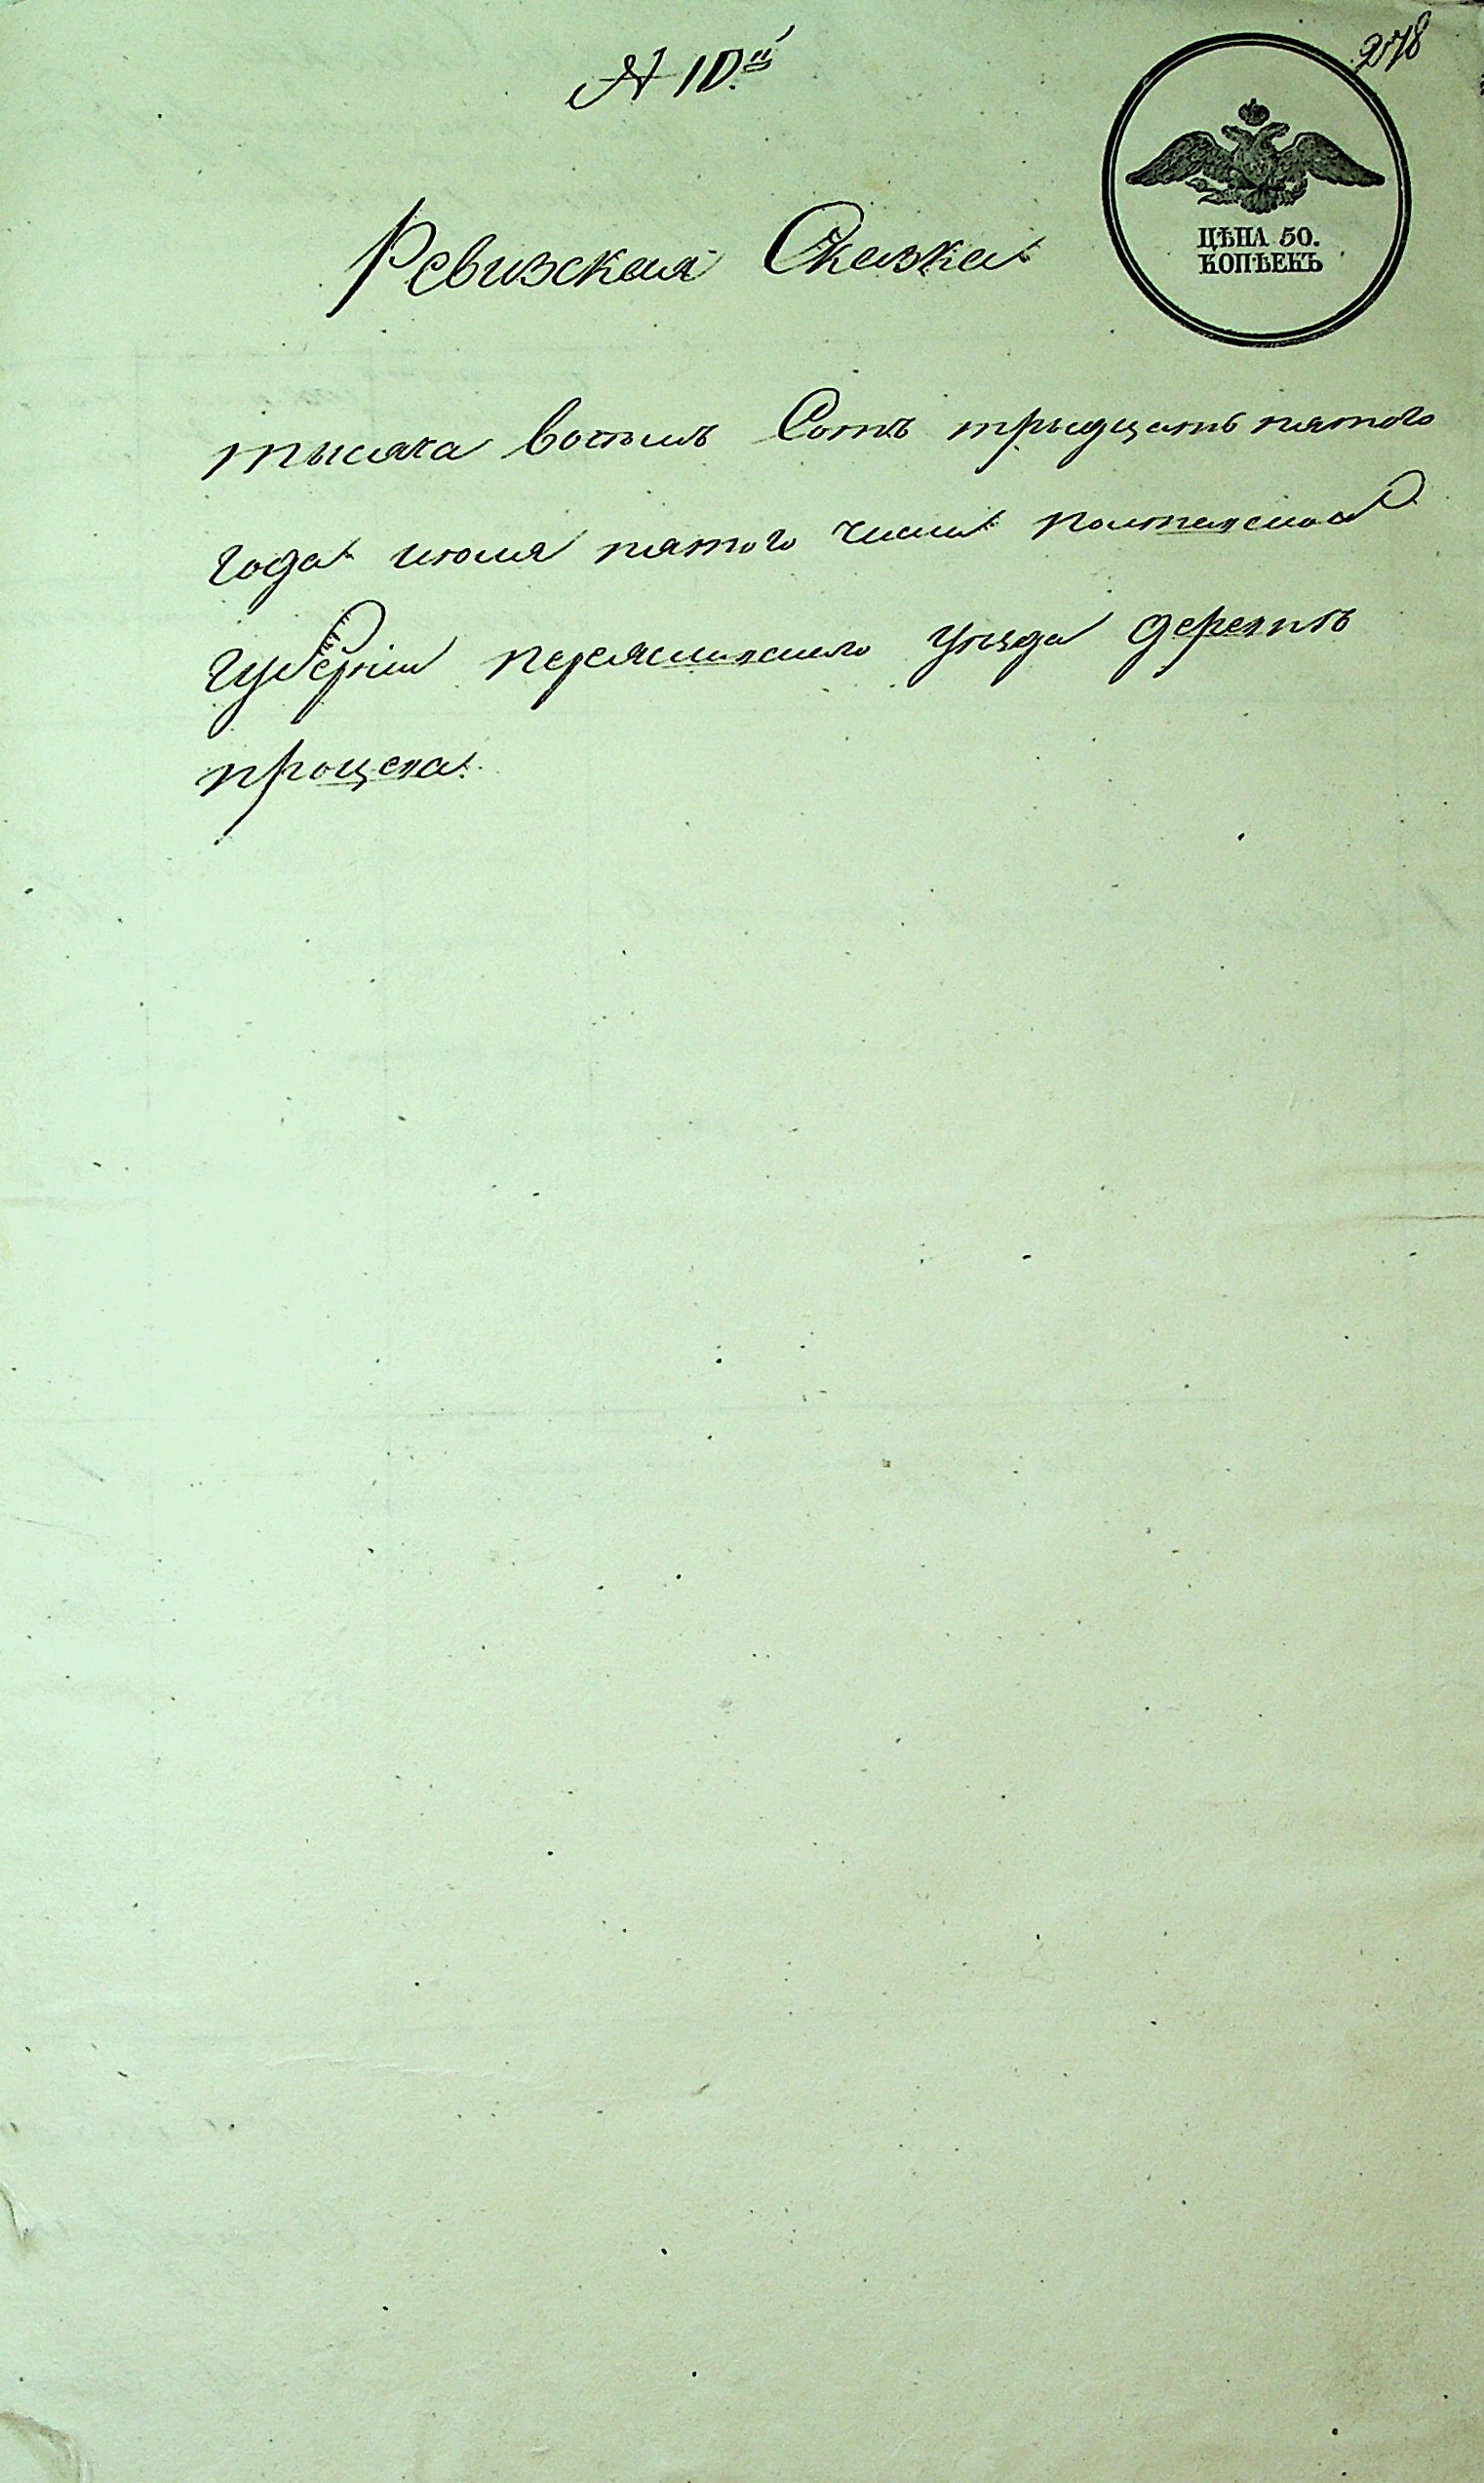 278
№ 10й
ЦѢНА 50.
КОПѢЕКЪ
Ревизская Сказка
тысяча восемь Сотъ трыдцать пятого
года июля пятого числа полтавской
губернии переяславского уезда деревнѣ
процека